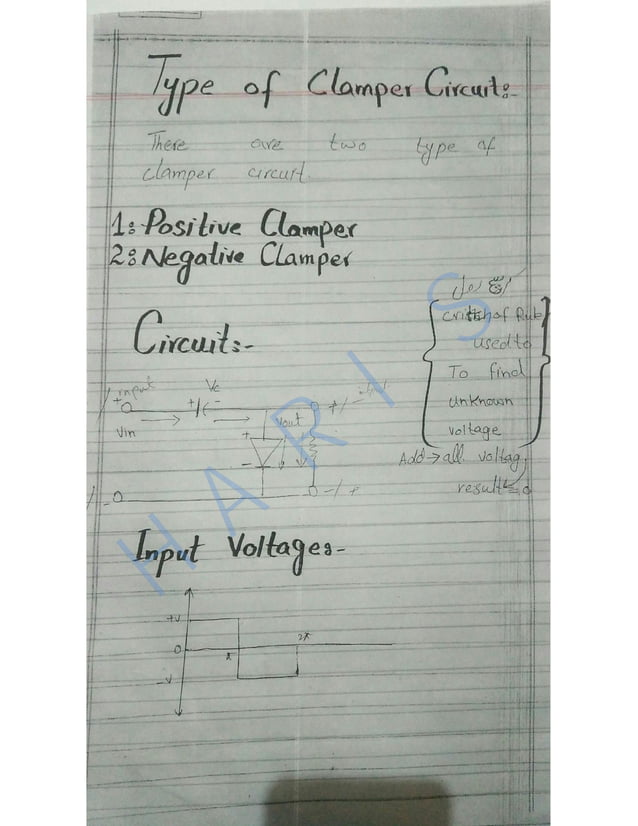 Type of Clamper Circuit:-
There are two type of
clamper circuit.
1: Positive Clamper
2: Negative Clamper
Circuit:-
used to
To find
unknown
voltage
Add → all voltag
result = 0
input
Vc
+
+
-
+/-
Vin
Vout
+
-
-
-/+
Input Voltages-
+v
0
π
2π
-v
HARIS